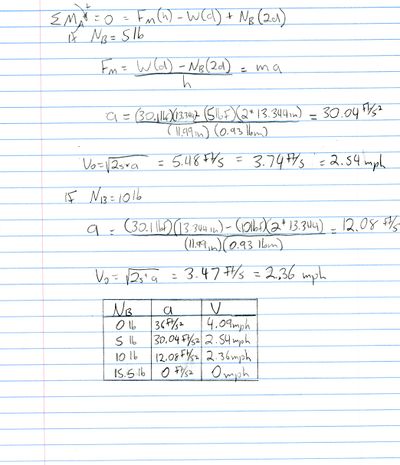 ΣM_A = 0 = F_M(h) - W(d) + N_B(2d)
If N_B = 5 lb
F_M = (W(d) - N_B(2d)) / h = ma
a = ((30.1 lbf)(13.344in) - (5 lbf)(2*13.344in)) / ((11.99in)(0.93 lbm)) = 30.04 ft/s²
V_0 = √(2s*a) = 5.48 ft/s = 3.74 ft/s = 2.54 mph
If N_B = 10 lb
a = ((30.1 lbf)(13.344in) - (10 lbf)(2*13.344)) / ((11.99in)(0.93 lbm)) = 12.08 ft/s
V_0 = √(2s*a) = 3.47 ft/s = 2.36 mph
N_B a V
0 lb 36 ft/s² 4.09mph
5 lb 30.04 ft/s² 2.54mph
10 lb 12.08 ft/s² 2.36mph
15.5 lb 0 ft/s² 0 mph